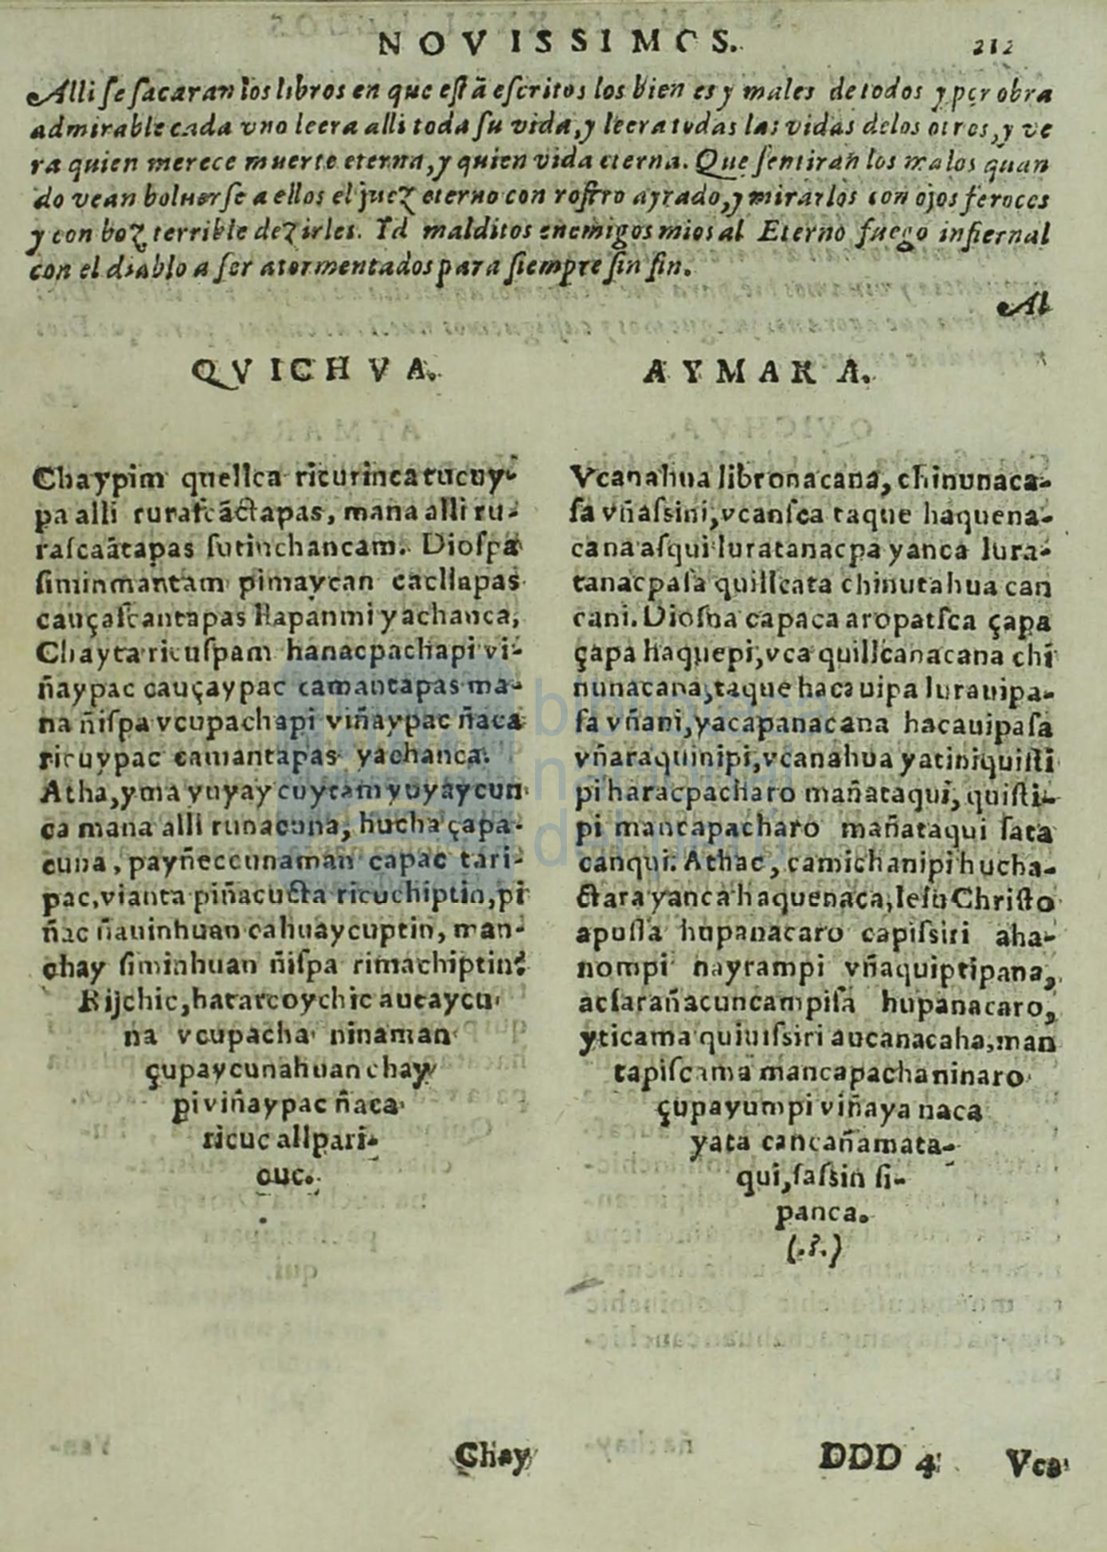 NOVISSIMOS. 212
Alli se sacaran los libros en que estã escritos los bien es y males de todos y por obra
admirable cada vno leera alli toda su vida, y leera todas las vidas de los otros, y ve
ra quien merece muerte eterna, y quien vida eterna. Que sentiran los malos quan
do vean boluerse a ellos el juez eterno con rostro ayrado, y mirarlos con ojos feroces
y con boz terrible dezirles. Id malditos enemigos mios al Eterno fuego infiernal
con el diablo a ser atormentados para siempre sin fin.
Al
QVICHVA.
Chaypim quellca ricurincatucuy-
pa alli rurascãctapas, mana alli ru-
rascaãtapas sutinchancam. Diospa
siminmantam pimaycan cacllapas
cauçascantapas llapanmi yachanca,
Chayta ricuspam hanacpachapi vi-
ñaypac cauçaypac camantapas ma-
na ñispa vcupachapi viñaypac ñaca
ricuypac camantapas yachanca.
Atha, yma yuyaycuytam yuyaycun
ca mana alli runacuna, hucha çapa-
cuna, payñeccunaman capac tari-
pac, vianta piñacucta ricuchiptin, pi
ñac ñauinhuan cahuaycuptin, man-
chay siminhuan ñispa rimachiptin?
Rijchic, hatarcoychic aucaycu
na vcupacha ninaman
çupaycunahuan chay
pi viñaypac ñaca
ricuc allpari-
cuc.
AYMARA.
Vcanahua libronacana, chinunaca-
sa vñassini, vcansca taque haquena-
cana asqui luratanacpa yanca lura-
tanacpasa quillcata chinutahua can
cani. Diosna capaca aropatsca çapa
çapa haquepi, vca quillcanacana chi
nunacana, taque haca uipa lurauipa-
sa vñani, yacapanacana hacauipasa
vñaraquinipi, vcanahua yatiniquisti
pi haracpacharo mañataqui, quisti-
pi mancapacharo mañataqui sata
canqui. Athac, camichanipi hucha-
ctara yanca haquenaca, Iesu Christo
apussa hupanacaro capissiri aha-
nompi nayrampi vñaquiptipana,
acsarañacuncampisa hupanacaro,
yticama quiuissiri aucanacaha, man
tapiscama mancapachaninaro
çupayumpi viñaya naca
yata cancañamata-
qui, sassin si-
panca.
(.?.)
Chay DDD 4 Vca